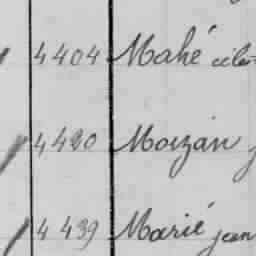 4404 Mahé
4420 Moizan
4439 Marié jean